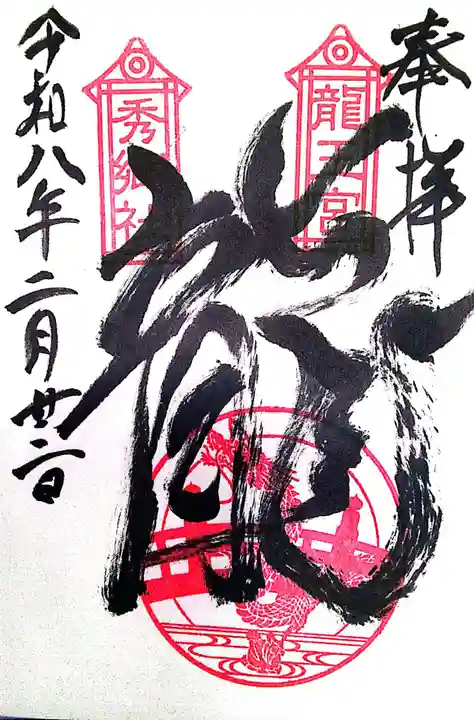 奉拝
龍王宮
龍
秀郷社
令和八年二月廿二日